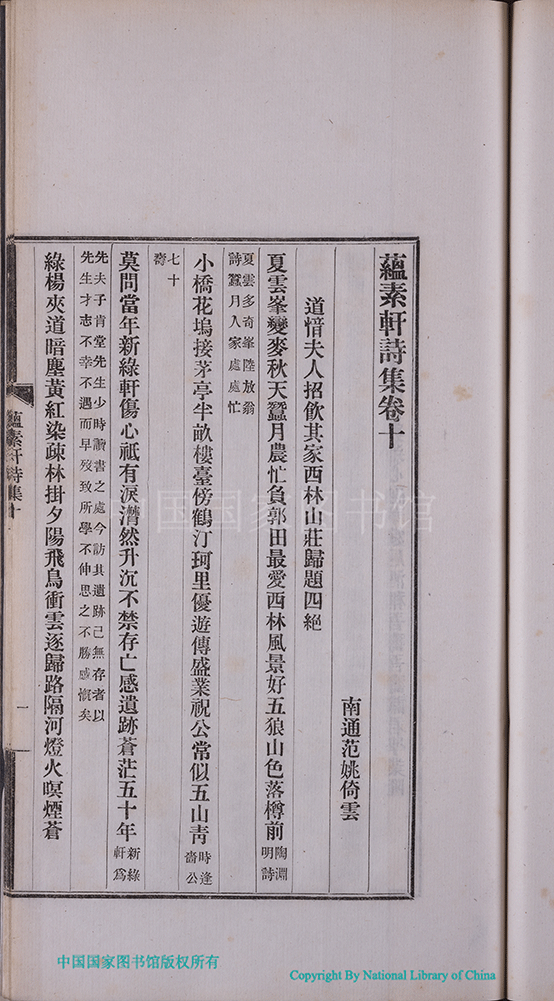 蘊素軒詩集卷十
南通范姚倚雲
道愔夫人招飲其家西林山莊歸題四絕
夏雲峯變麥秋天蠶月農忙負郭田最愛西林風景好五狼山色落樽前
陶淵
明詩
夏雲多奇峯陸放翁
詩蠶月人家處處忙
小橋花塢接茅亭半畝樓臺傍鶴汀珂里優遊傳盛業祝公常似五山靑
時逢
嗇公
七十
壽
莫問當年新綠軒傷心祗有淚潸然升沉不禁存亡感遺跡蒼茫五十年
新綠
軒爲
先夫子肯堂先生少時讀書之處今訪其遺跡已無存者以
先生才志不幸不遇而早歿致所學不伸思之不勝感慨矣
綠楊夾道暗塵黃紅染疎林掛夕陽飛鳥衝雲逐歸路隔河燈火暝煙蒼
蘊素軒詩集十
一
中国国家图书馆
中国国家图书馆版权所有
Copyright By National Library of China